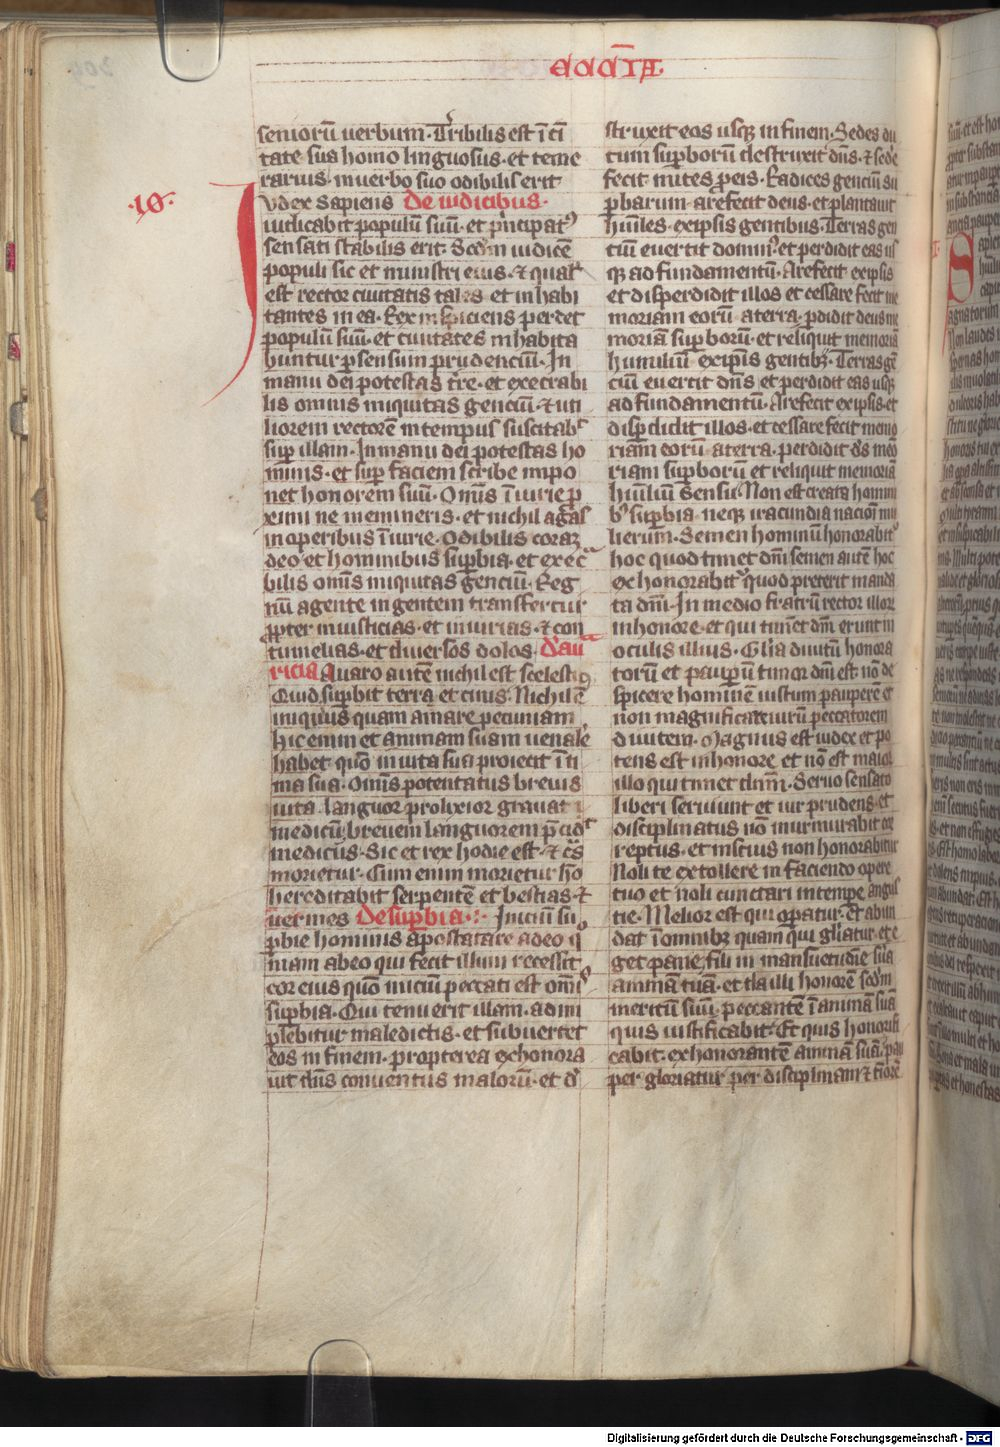 ECCCIA.
·10·
senioru̅ uerbum· Tͥribilis est i̅ ci̅
tate sua homo linguosus· et teme
rarius· in uerbo suo odibilis erit
Iudex sapiens De iudicibus·
iudicabit populu̅ suu̅· et pͥncipatꝰ
sensati stabilis erit· Scdm iudice̅
populi sic et ministri eius· ⁊ qualꝭ
est rector ciuitatis tales et inhabi
tantes in ea· Rex insipiens perdet
populu̅ suu̅· et ciuitates inhabita
buntur ꝑ sensum prudenciu̅· In
manu dei potestas tͬre· et execrabi
lis omnis iniquitas genciu̅· ⁊ uti
liorem rectore̅ in tempus suscitabͭ
suꝑ illam· In manu dei potestas ho
minis· et suꝑ faciem scribe impo
net honorem suu̅· Om̅s i̅iurie ꝓ
ximi ne memineris· et nichil agas
in operibus i̅iurie· Odibilis coraꝫ
deo et hominibus suꝑbia· et exec̅ͣ
bilis om̅s iniquitas genciu̅· Reg
nu̅ agente in gentem transfertur
ꝓpter iniusticias· et iniurias· ⁊ con
tumelias· et diuersos dolos· D' aua
ricia Auaro aute̅ nichil est scelestiꝰ
Quid suꝑbit terra et cinis· Nichil e̅
iniquius quam amare pecuniam
hic enim et animam suam uenale̅
habet· quo̅ in uita sua proiecit i̅ti
ma sua· Om̅s potentatus breuis
uita· languor prolixior grauat
medicu̅· breuem languorem p̅cidͭ
medicus· Sic et rex hodie est· ⁊ cͣs
morietur· Cum enim morietur ho̅
hereditabit serpente̅ et bestias· ⁊
uermes De suꝑbia·:· Iniciu̅ su
ꝑbie hominis apostatare a deo qͦ
niam ab eo qui fecit illum recessit
cor eius quo̅ iniciu̅ peccati est om̅ꝭ
suꝑbia· Qui tenuerit illam· adim
plebitur maledictis· et subuertet
eos in finem· propterea exhonora
uit dn̅s conuentus maloru̅· et de
struxit eos usqꝫ in finem· Sedes du
cum suꝑboru̅ destruxit dn̅s· ⁊ sede̅
fecit mites ꝓ eis· Radices genciu̅ su
ꝑbarum· arefecit deus· et plantauit
hu̅iles· ex ipsis gentibus· Terras gen
ciu̅ euertit dominꝰ· et perdidit eas us
qꝫ ad fundamentu̅· Arefecit ex ipsis
et disperdidit illos et cessare fecit me
moriam eoru̅ a terra· perdidit deus me
moria̅ suꝑboru̅· et reliquit memoria̅
humiliu̅ ex ipsis gentibꝫ· Terras ge̅
ciu̅ euertit dn̅s et perdidit eas usqꝫ
ad fundamentu̅· Arefecit ex ipsis· et
disꝑdidit illos· et cessare fecit memo
riam eoru̅ a terra· perdidit ds̅ meo̅
riam suꝑboru̅ et reliquit memoria̅
hu̅iliu̅ sensu· Non est creata homini
bꝰ suꝑbia· neqꝫ iracundia nacio̅i mu
lierum· Semen hominu̅ honorabitͬ
hoc quod timet dm̅· semen aute̅ hoc
exhonorabitͬ quod preterit manda
ta dm̅i· In medio fratru̅ rector illorꝫ
in honore· et qui time̅t dm̅ erunt in
oculis illius· Glͥa diuitu̅ honora
toru̅ et pauꝑu̅ timor dm̅i est· no̅ de
spicere hominem iustum paupere̅ et
non magnificare uiru̅ peccatorem
diuitem· Magnus est iudex et po
tens est in honore et no̅ est maior
illo qui timet dn̅m· Seruo sensato
liberi seruiunt et uir prudens· et
disciplinatus no̅ murmurabit cor
reptus· et inscius non honorabitur
Noli te extollere in faciendo opere
tuo et noli cunctari in tempe angus
tie· Melior est qui oꝑatur· Et abun
dat i̅ omnibꝫ quam qui gl̅iatur· et e
get pane· fili in mansuetudi̅e sͬua
animam tua̅· et da illi honore̅ scdm
meritu̅ suu̅· peccante̅ i̅ anima̅ sua̅
quis iustificabit· Et quis honorifi
cabit· exhonorante̅ anima̅ sua̅· pau
per gloriatur per disciplinam ⁊ timore̅
Digitalisierung gefördert durch die Deutsche Forschungsgemeinschaft - DFG